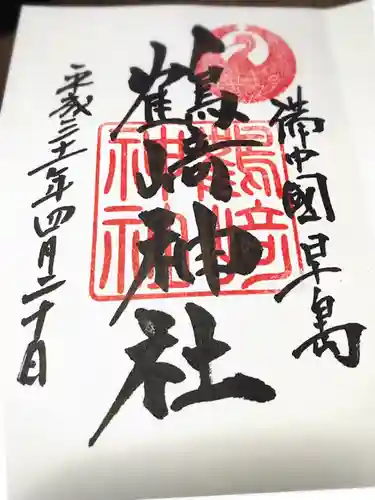 備中國早島
鶴﨑神社
鶴﨑神社
平成三十一年四月二十日